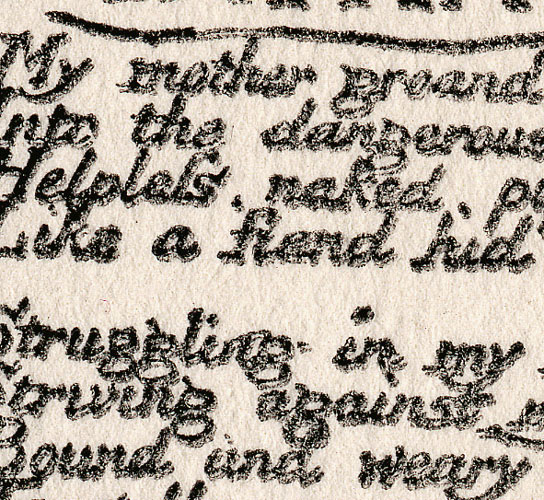 My mother groand
nto the dangerous
Helpless, naked, pi
Like a fiend hid

Struggling in my
Striving against
Bound and weary